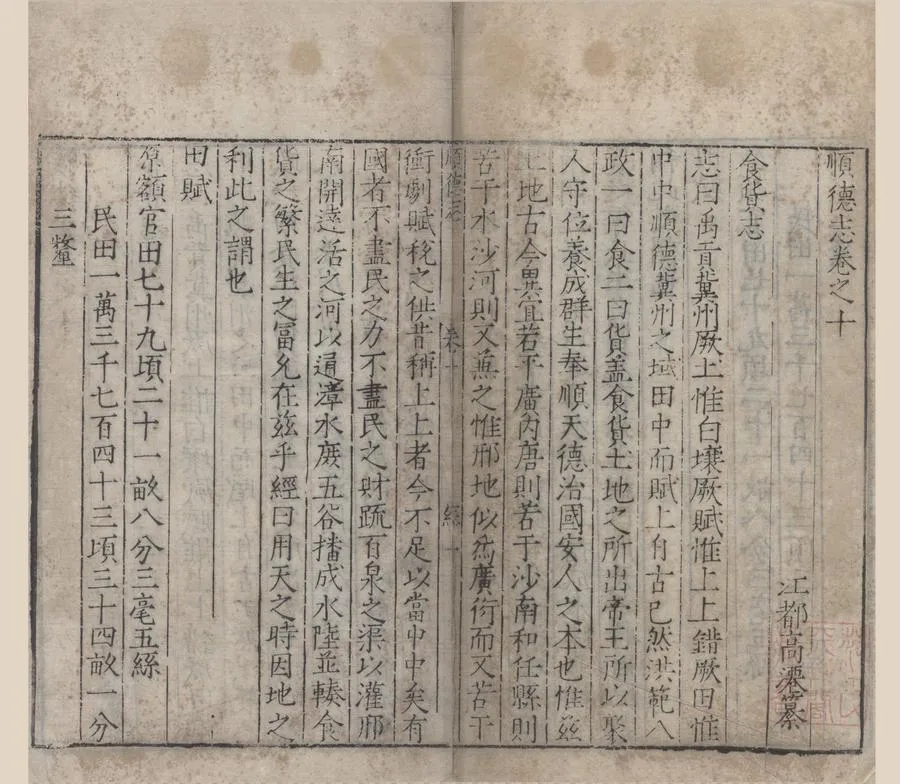 順德志卷之十
江都高濲纂
食貨志
志曰禹貢冀州厥土惟白壤厥賦惟上上錯厥田惟
中中順德冀州之域田中而賦上自古已然洪範八
政一曰食二曰貨盖食貨土地之所出帝王所以聚
人守位養成群生奉順天德治國安人之本也惟兹
土地古今異宜若平廣内唐則若于沙南和任縣則
苦于水沙河則又兼之惟邢地似爲廣衍而又苦于
順德志 卷十 一
衝劇賦税之供昔稱上上者今不足以當中中矣有
國者不盡民之力不盡民之財疏百泉之渠以灌邢
南開達活之河以通漳水庶五谷播成水陸並輳食
貨之繁民生之冨允在兹乎經曰用天之時因地之
利此之謂也
田賦
原額官田七十九頃二十一畝八分三毫五絲
民田一萬三千七百四十三頃三十四畝一分
三釐